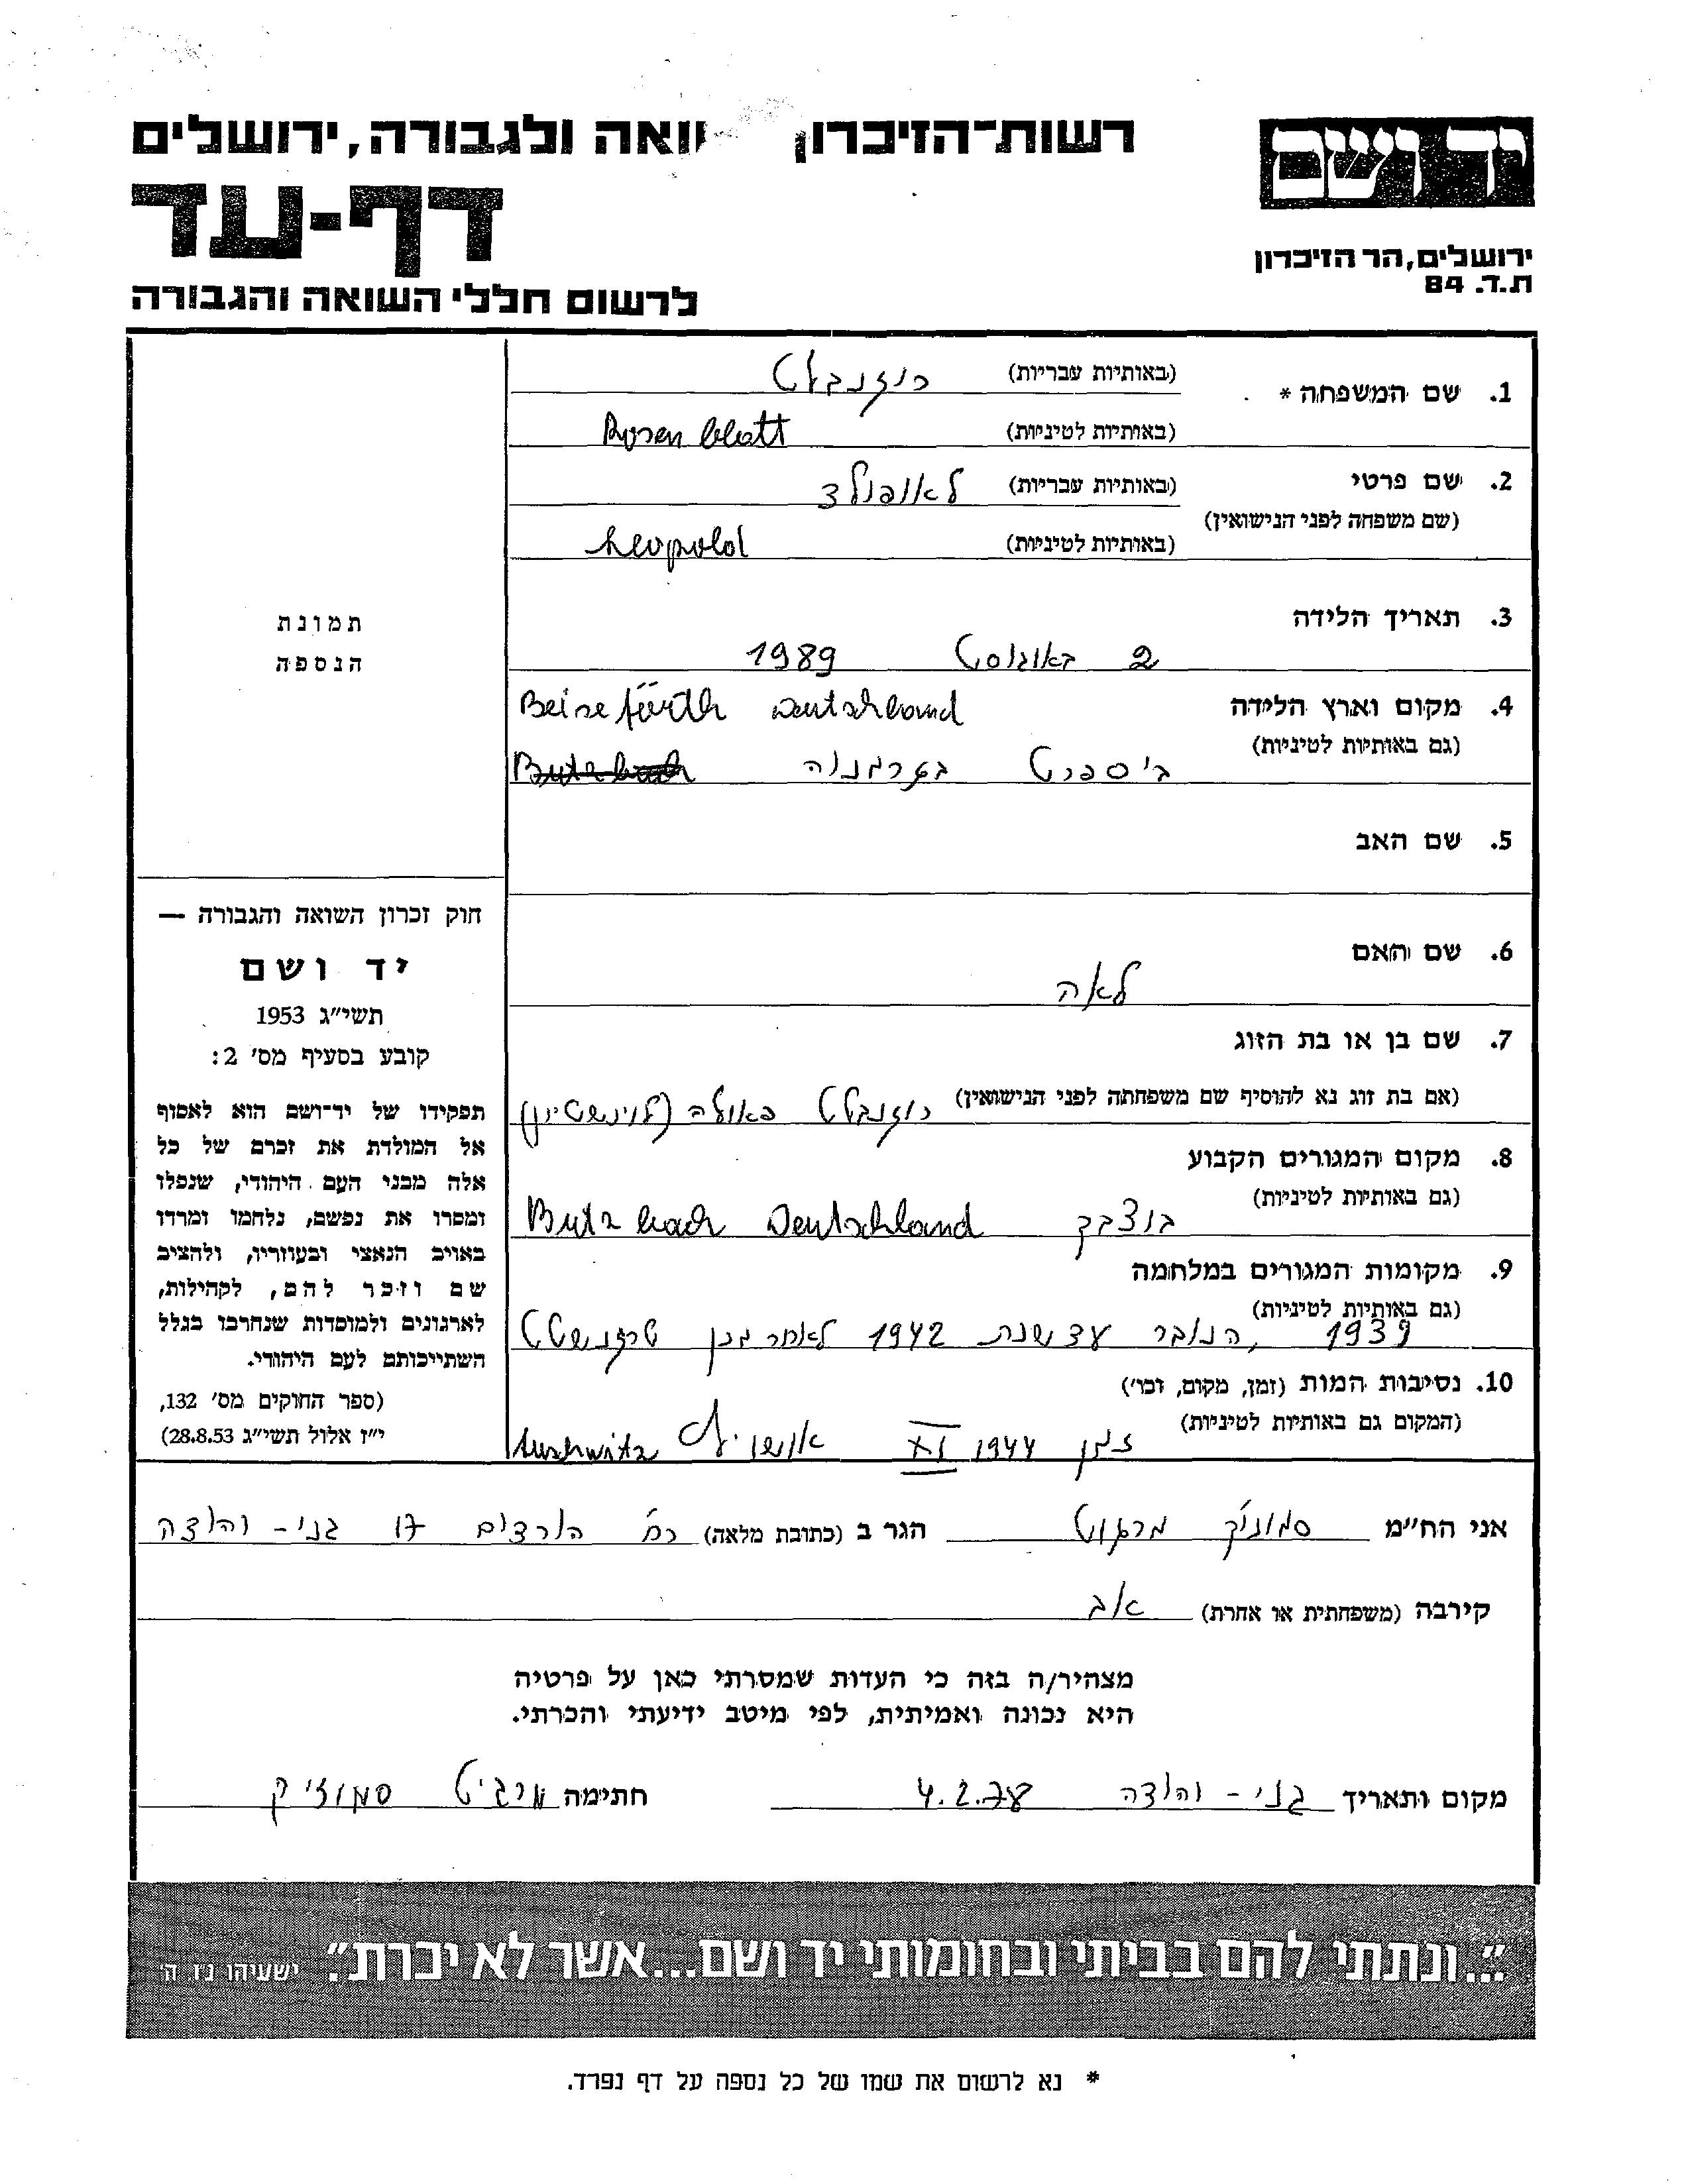 יד ושם
ירושלים, הר הזיכרון
ת.ד. 84
רשות-הזיכרון ולגבורה, ירושלים
דף-עד
לרשום חללי השואה והגבורה
1. שם המשפחה * (באותיות עבריות) רוזנבלט
(באותיות לטיניות) Rosenblatt
2. שם פרטי (באותיות עבריות) לאופולד
(שם משפחה לפני הנישואין)
(באותיות לטיניות) Leopold
3. תאריך הלידה
2 באוגוסט 1989
4. מקום וארץ הלידה Beiseförth Deutschland
(גם באותיות לטיניות)
ביספרט בגרמניה
5. שם האב
6. שם האם
לאה
7. שם בן או בת הזוג
(אם בת זוג נא להוסיף שם משפחתה לפני הנישואין) רוזנבלט פאולה (לוינשטיין)
8. מקום המגורים הקבוע
(גם באותיות לטיניות)
בוצבך Butzbach Deutschland
9. מקומות המגורים במלחמה
(גם באותיות לטיניות)
1939, עד שנת 1942 לאחר מכן טרזנשטט
10. נסיבות המות (זמן, מקום, וכו')
(המקום גם באותיות לטיניות)
זמן 1944 XI אושויץ Auschwitz
תמונת
הנספה
חוק זכרון השואה והגבורה —
יד ושם
תשי"ג 1953
קובע בסעיף מס' 2:
תפקידו של יד-ושם הוא לאסוף
אל המולדת את זכרם של כל
אלה מבני העם היהודי, שנפלו
ומסרו את נפשם, נלחמו ומרדו
באויב הנאצי ובעוזריו, ולהציב
שם וזכר להם, לקהילות,
לארגונים ולמוסדות שנחרבו בגלל
השתייכותם לעם היהודי.
(ספר החוקים מס' 132,
י"ז אלול תשי"ג 28.8.53)
אני הח"מ מרגוט הגר ב (כתובת מלאה) רח' הורדים 17 גני-יהודה
קירבה (משפחתית או אחרת) אב
מצהיר/ה בזה כי העדות שמסרתי כאן על פרטיה
היא נכונה ואמיתית, לפי מיטב ידיעתי והכרתי.
מקום ותאריך גני-יהודה 4.2.78 חתימה
"...ונתתי להם בביתי ובחומותי יד ושם...אשר לא יכרת". ישעיהו נ"ו, ה'
* נא לרשום את שמו של כל נספה על דף נפרד.